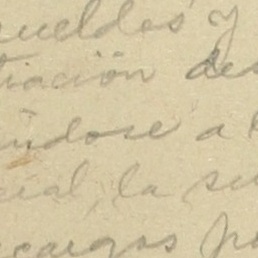 sueldos y
iación des
ándose a
cial, la su
cargos po